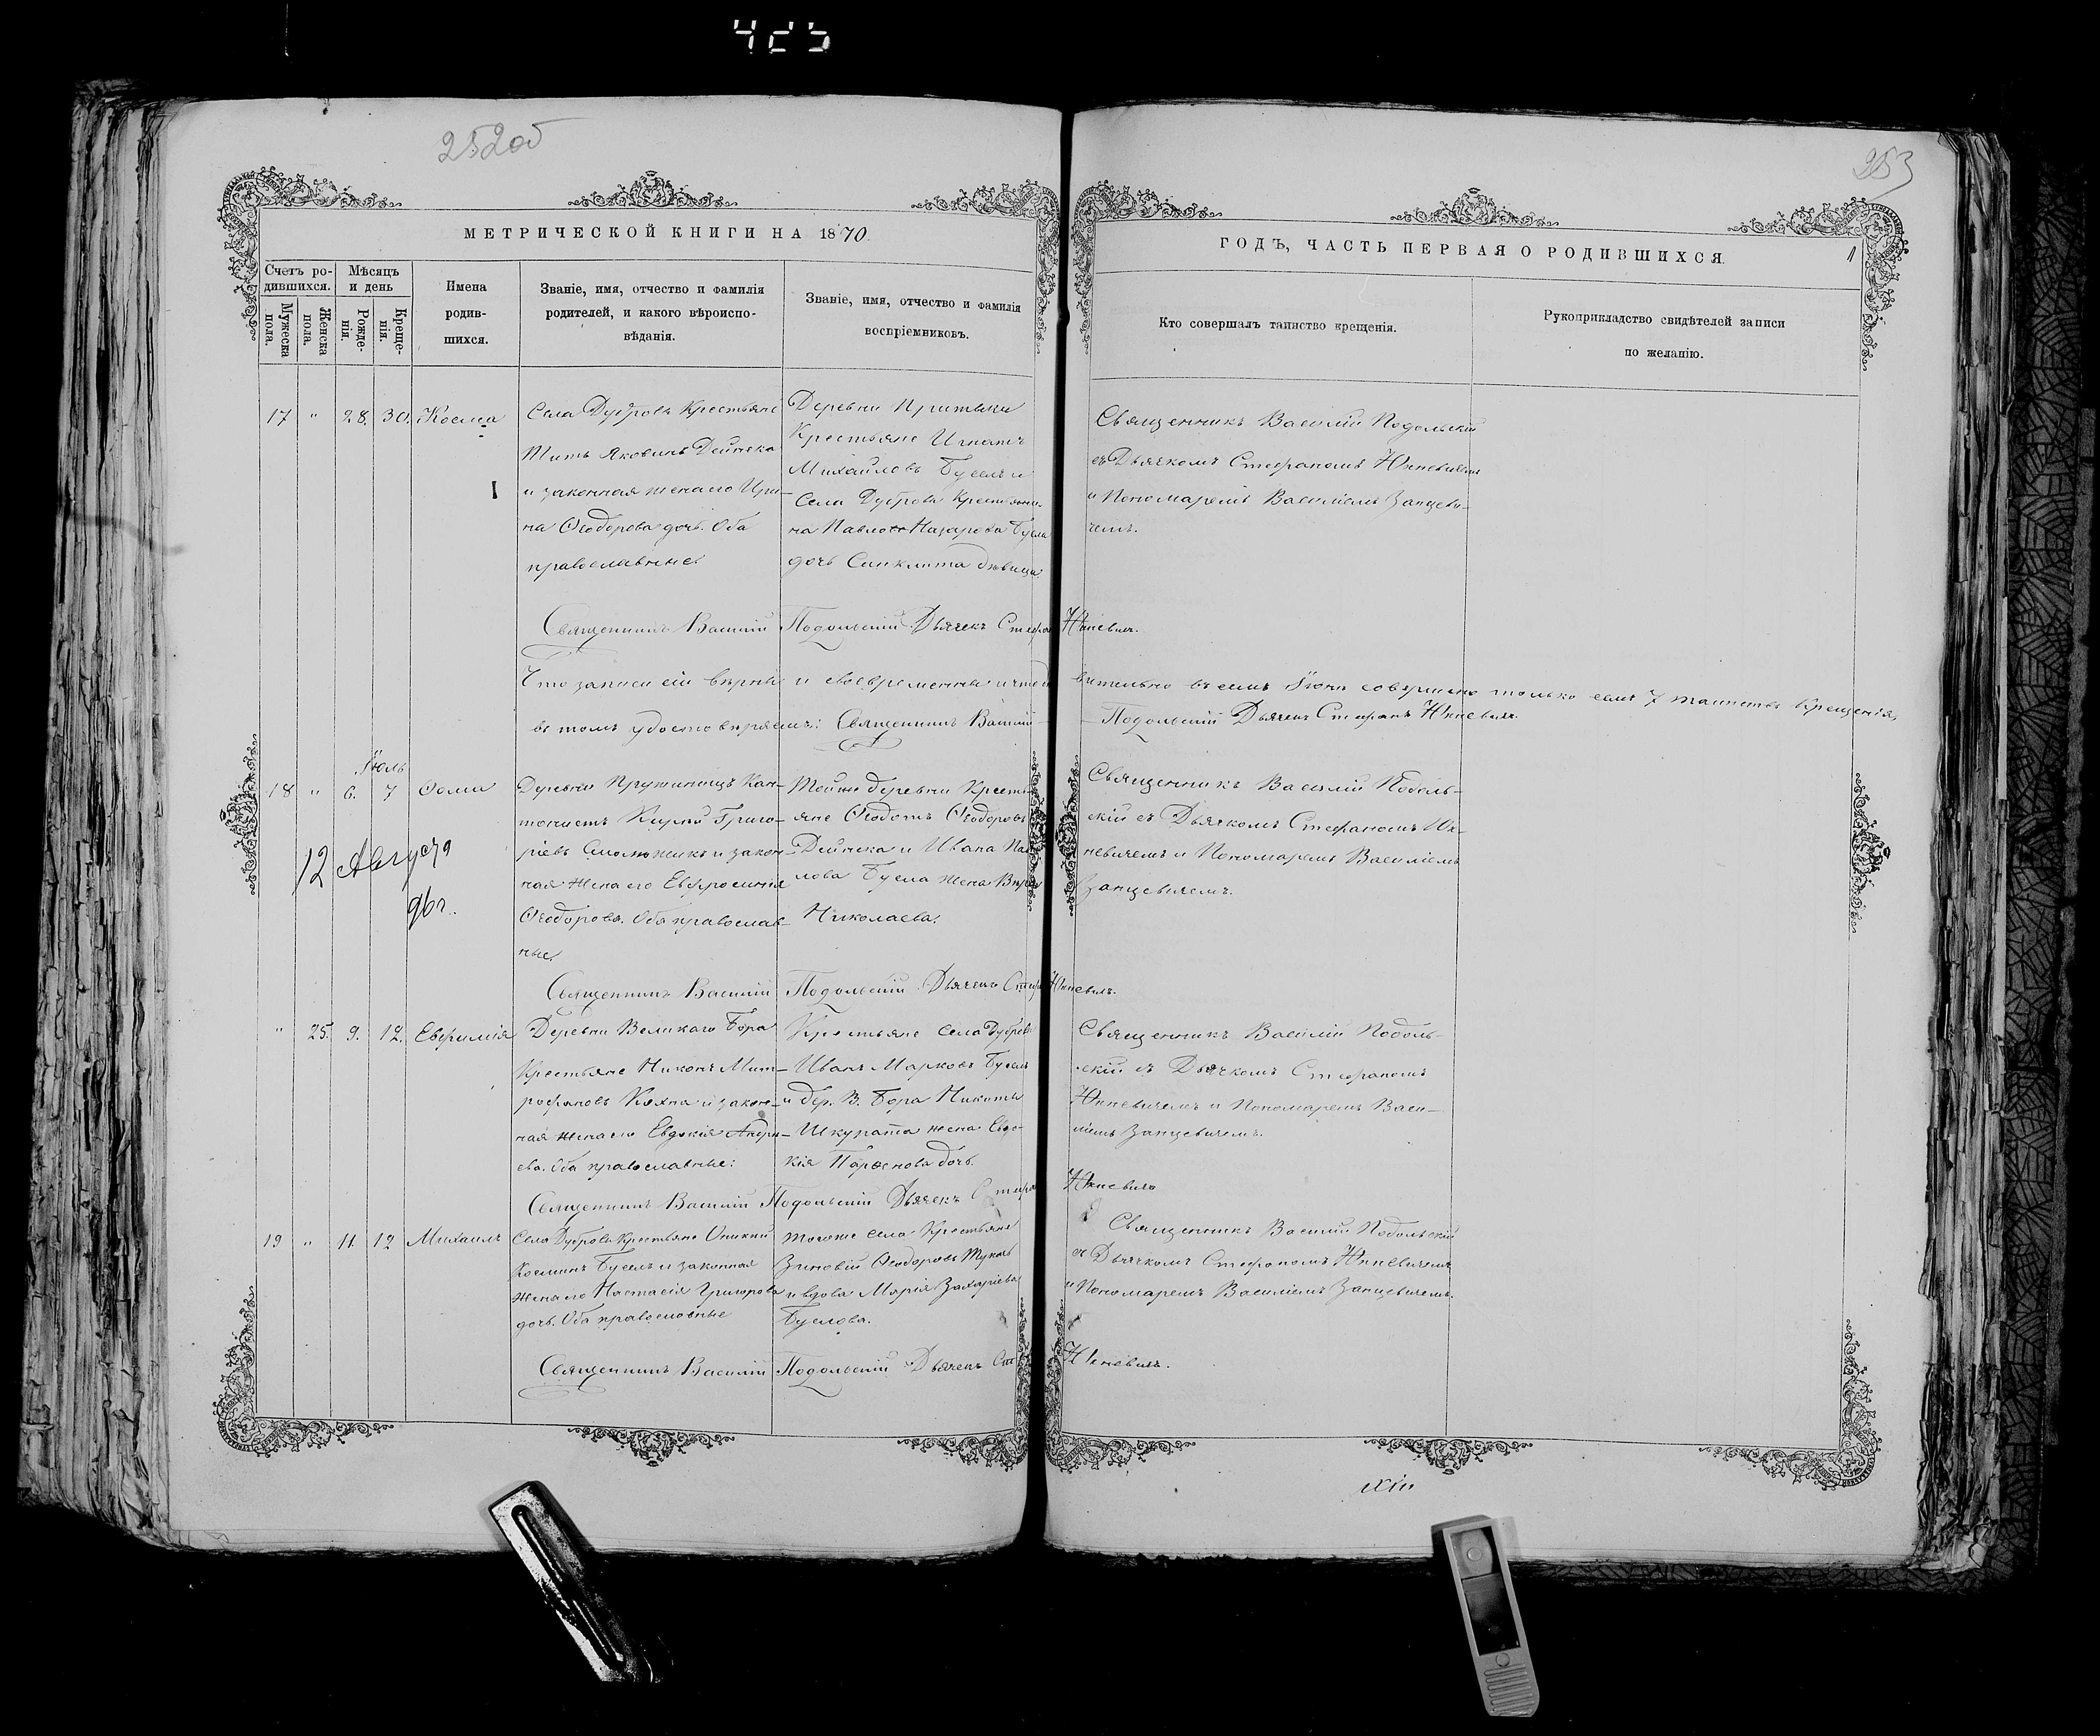 252об
253
МЕТРИЧЕСКОЙ КНИГИ НА 1870.
ГОДЪ, ЧАСТЬ ПЕРВАЯ О РОДИВШИХСЯ
Счетъ ро-
дившихся.
Мужеска
пола.
Женска
пола.
Мѣсяцъ
и день
Рожде-
нія.
Креще-
нія.
Имена
родив-
шихся.
Званіе, имя, отчество и фамилія
родителей, и какого вѣроиспо-
вѣданія.
Званіе, имя, отчество и фамилія
воспріемниковъ.
Кто совершалъ таинство крещенія.
Рукоприкладство свидѣтелей записи
по желанію.
17 " 28. 30. Косма
Села Дуброва Крестьяне
Титъ Яковинъ Дейнека
и законная жена его Ири-
на Ѳеодорова дочь. Оба
православные
Деревни Притыки
Крестьяне Игнатъ
Михайловъ Буселъ и
Села Дуброва Крестьяни-
на Павла Назарова Бусла
дочь Синклита дѣвица.
Священникъ Василій Подольскій
съ Дьячкомъ Стефаномъ
и Пономаремъ Василіемъ Занцеви-
чемъ.
Священникъ Василій Подольскій Дьячекъ
Что записи сіи вѣрны и своевременны и что
вительно въ семъ Іюнѣ совершено только семь 7 таинствъ Крещенія,
въ томъ удостовѣряемъ: Священникъ Василій
Подольскій Дьячекъ Стефанъ
Іюль
18 " 6. 7
12 Августа
96г.
Деревни Пружинищъ Кан-
тонистъ Григо-
ріевъ и закон-
ная жена его Евфросинія
Ѳеодорова. Оба православ-
ные.
Тойже деревни Кресть-
яне Ѳеодотъ Ѳеодоровъ
Дейнека и Ивана Пав
лова Бусла жена Вѣра
Николаева.
Священникъ Василій Подоль-
скій съ Дьячкомъ Стефаномъ
невичемъ и Пономаремъ Василіемъ
Занцевичемъ.
Священникъ Василій Подольскій Дьячекъ
" 25. 9. 12. Евфимія
Деревни Великаго Бора
Крестьяне Никонъ Мит-
рофановъ Кохна и закон-
ная жена его Евдокія Андре-
ева. Оба православные:
Крестьяне села Дуброва
Иванъ Марковъ Буселъ
и дер. В. Бора Никиты
Шкурата жена Евдо-
кія Парѳенова дочь.
Священникъ Василій Подоль-
скій съ Дьячкомъ Стефаномъ
и Пономаремъ Васи-
ліемъ Занцевичемъ.
Священникъ Василій Подольскій Дьячекъ
19 " 11. 12 Михаилъ
Села Дуброва Крестьяне
Косминъ Буселъ и законная
жена его Настасія Григорова
дочь. Оба православные
тогоже села Крестьяне
Зиновій Ѳеодоровъ
и вдова Марія Захаріева
Буслова.
Священникъ Василій Подольскій
съ Дьячкомъ Стефаномъ
и Пономаремъ Василіемъ Занцевичемъ.
Священникъ Василій Подольскій Дьячекъ